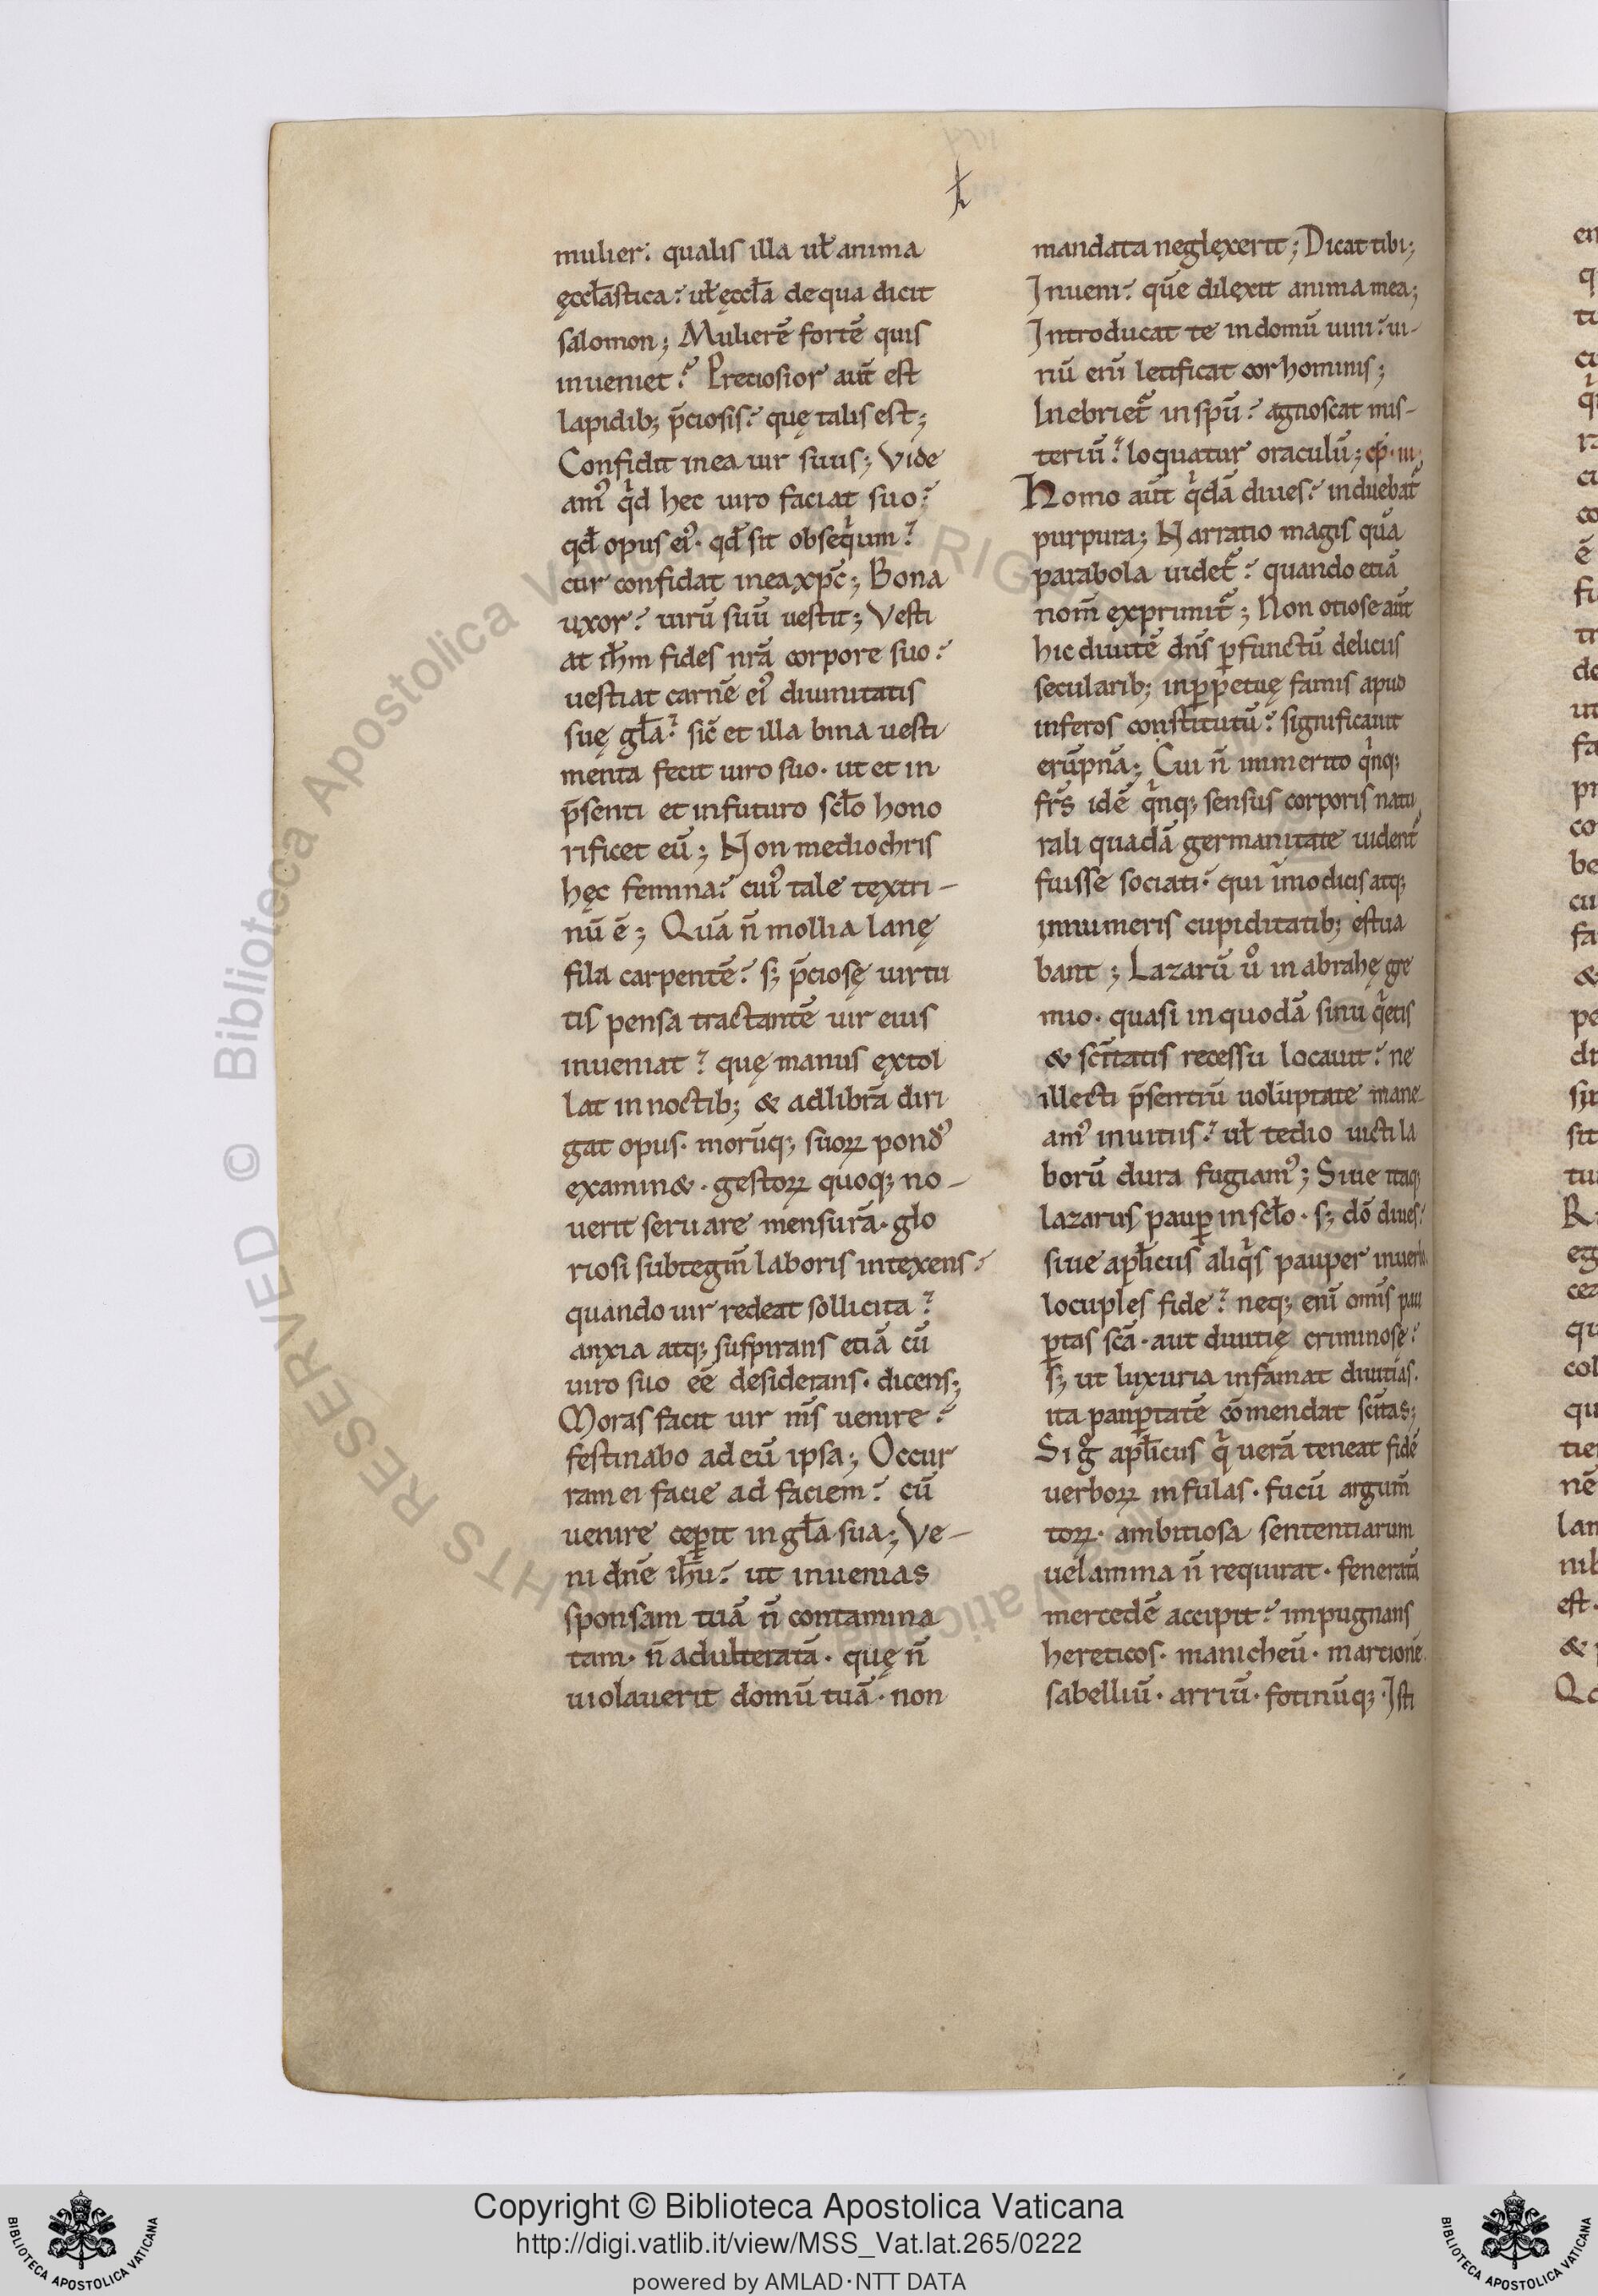 mulier. qualis illa uł anima
ęccła̅stica? uł ęccła̅ de qua dicit
salomon; Muliere̅ forte̅ quis
inueniet? Preciosior aut̅ est
lapidib; p̅ciosis? quę talis est;
Confidit in ea uir suus; Vide
am᾽ qͥd hec uiro faciat suo?
qd̅ opus ei᾽· qd̅ sit obseqͥum?
cur confidat in ea xp̅c; Bona
uxor? uiru̅ suu̅ uestit; Vesti
at ih̅m fides nr̅a corpore suo?
uestiat carne̅ ei᾽ diuinitatis
suę gl̅a? sic̅ et illa bina uesti
menta fecit uiro suo· ut et in
p̅senti et in futuro scl̅o hono
rificet eu̅; Non mediochris
hęc femina? cui᾽ tale textri-
nu̅ e̅; Qua̅ n̅ mollia lanę
fila carpente̅? s; p̅ciosę uirtu
tis pensa tractante̅ uir eius
inueniat? quę manus extol
lat in noctib; & ad libra̅ diri
gat opus· moru̅q; suoꝝ pond᾽
examin&· gestoꝝ quoq; no-
uerit seruare mensura̅· glo
riosi subtegm̅ laboris intexens?
quando uir redeat sollicita?
anxia atq; suspirans etia̅ cu̅
uiro suo ee̅ desiderans· dicens;
Moras facit uir m̅s uenire?
festinabo ad eu̅ ipsa; Occur
ram ei facie ad faciem? cu̅
uenire ceꝑit in gl̅a sua; Ve-
ni dn̅e ih̅u? ut inuenias
sponsam tua̅ n̅ contamina
tam· n̅ adulterata̅· quę n̅
uiolauerit domu̅ tua̅· non
mandata neglexerit; Dicat tibi;
Inueni? que̅ dilexit anima mea;
Introducat te in domu̅ uini? ui-
nu̅ eni̅ letificat cor hominis;
Inebriet᷑ in spu̅? agnoscat mis-
teriu̅? loquatur oraculu̅; cp̅· iii;
Homo aut̅ qͥda̅ diues? induebat᷑
purpura; Narratio magis qua̅
parabola uidet᷑? quando etia̅
nom̅ exprimit᷑; Non otiose aut̅
hic diuite̅ dn̅s ꝑfunctu̅ deliciis
secularib; in ꝑpetuę famis apud
inferos constitutu̅? significauit
eru̅pna̅; Cui n̅ immerito qͥnq;
fr̅s ide̅ qͥnq; sensus corporis natu
rali quada̅ germanitate uident᷑
fuisse sociati· qui i̅modicis atq;
innumeris cupiditatib; estua
bant; Lazaru̅ uͦ in abrahę gre
mio· quasi in quoda̅ sinu qͥetis
& sci̅tatis recessu locauit? ne
illecti p̅sentiu̅ uoluptate mane-
am᾽ in uitiis? uł tedio uicti la
boru̅ dura fugiam᾽; Siue itaq;
lazarus pauꝑ in scl̅o· s; do̅ diues?
siue apl̅icus aliqͥs pauper in uerbo
locuples fide? neq; eni̅ omi̅s pau
ꝑtas sc̅a· aut diuitię criminose?
s; ut luxuria infamat diuitias·
ita pauꝑtate̅ co̅mendat sci̅tas;
Si gͦ apl̅icus qͥ uera̅ teneat fide̅
uerboꝝ infulas· fucu̅ argum̅
toꝝ· ambitiosa sententiarum
uelamina n̅ requirat· fenerata̅
mercede̅ accipit? impugnans
hereticos· manicheu̅· martione̅·
sabelliu̅· arriu̅· fotinu̅q;· Isti
© Biblioteca Apostolica Vaticana
Copyright © Biblioteca Apostolica Vaticana
http://digi.vatlib.it/view/MSS_Vat.lat.265/0222
powered by AMLAD·NTT DATA